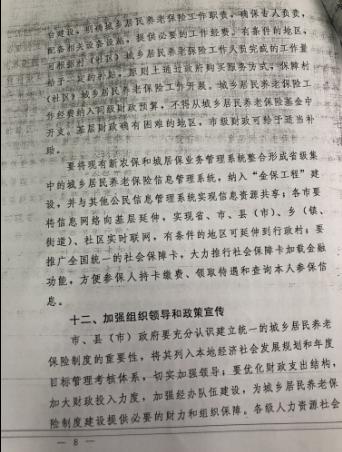 台建设，明确城乡居民养老保险工作职责，确保专人负责，
配备相关设备设施，提供必要的工作经费。有条件的地区，
可根据村（社区）城乡居民养老保险工作人员完成的工作量
给予一定的补贴，原则上通过政府购买服务方式，保障村
（社区）城乡居民养老保险工作开展。城乡居民养老保险工
作经费纳入同级财政预算，不得从城乡居民养老保险基金中
开支。基层财政确有困难的地区，市级财政可给予适当补
助。
要将现有新农保和城居保业务管理系统整合形成省级集
中的城乡居民养老保险信息管理系统，纳入“金保工程”建
设，并与其他公民信息管理系统实现信息资源共享；各市要
将信息网络向基层延伸，实现省、市、县（市）、乡（镇、
街道）、社区实时联网，有条件的地区可延伸到行政村；要
推广全国统一的社会保障卡，大力推行社会保障卡加载金融
功能，方便参保人持卡缴费、领取待遇和查询本人参保信
息。
十二、加强组织领导和政策宣传
市、县（市）政府要充分认识建立统一的城乡居民养老
保险制度的重要性，将其列入本地经济社会发展规划和年度
目标管理考核体系，切实加强领导；要优化财政支出结构，
加大财政投入力度，加强经办队伍建设，为城乡居民养老保
险制度建设提供必要的财力和组织保障。各级人力资源社会
— 8 —